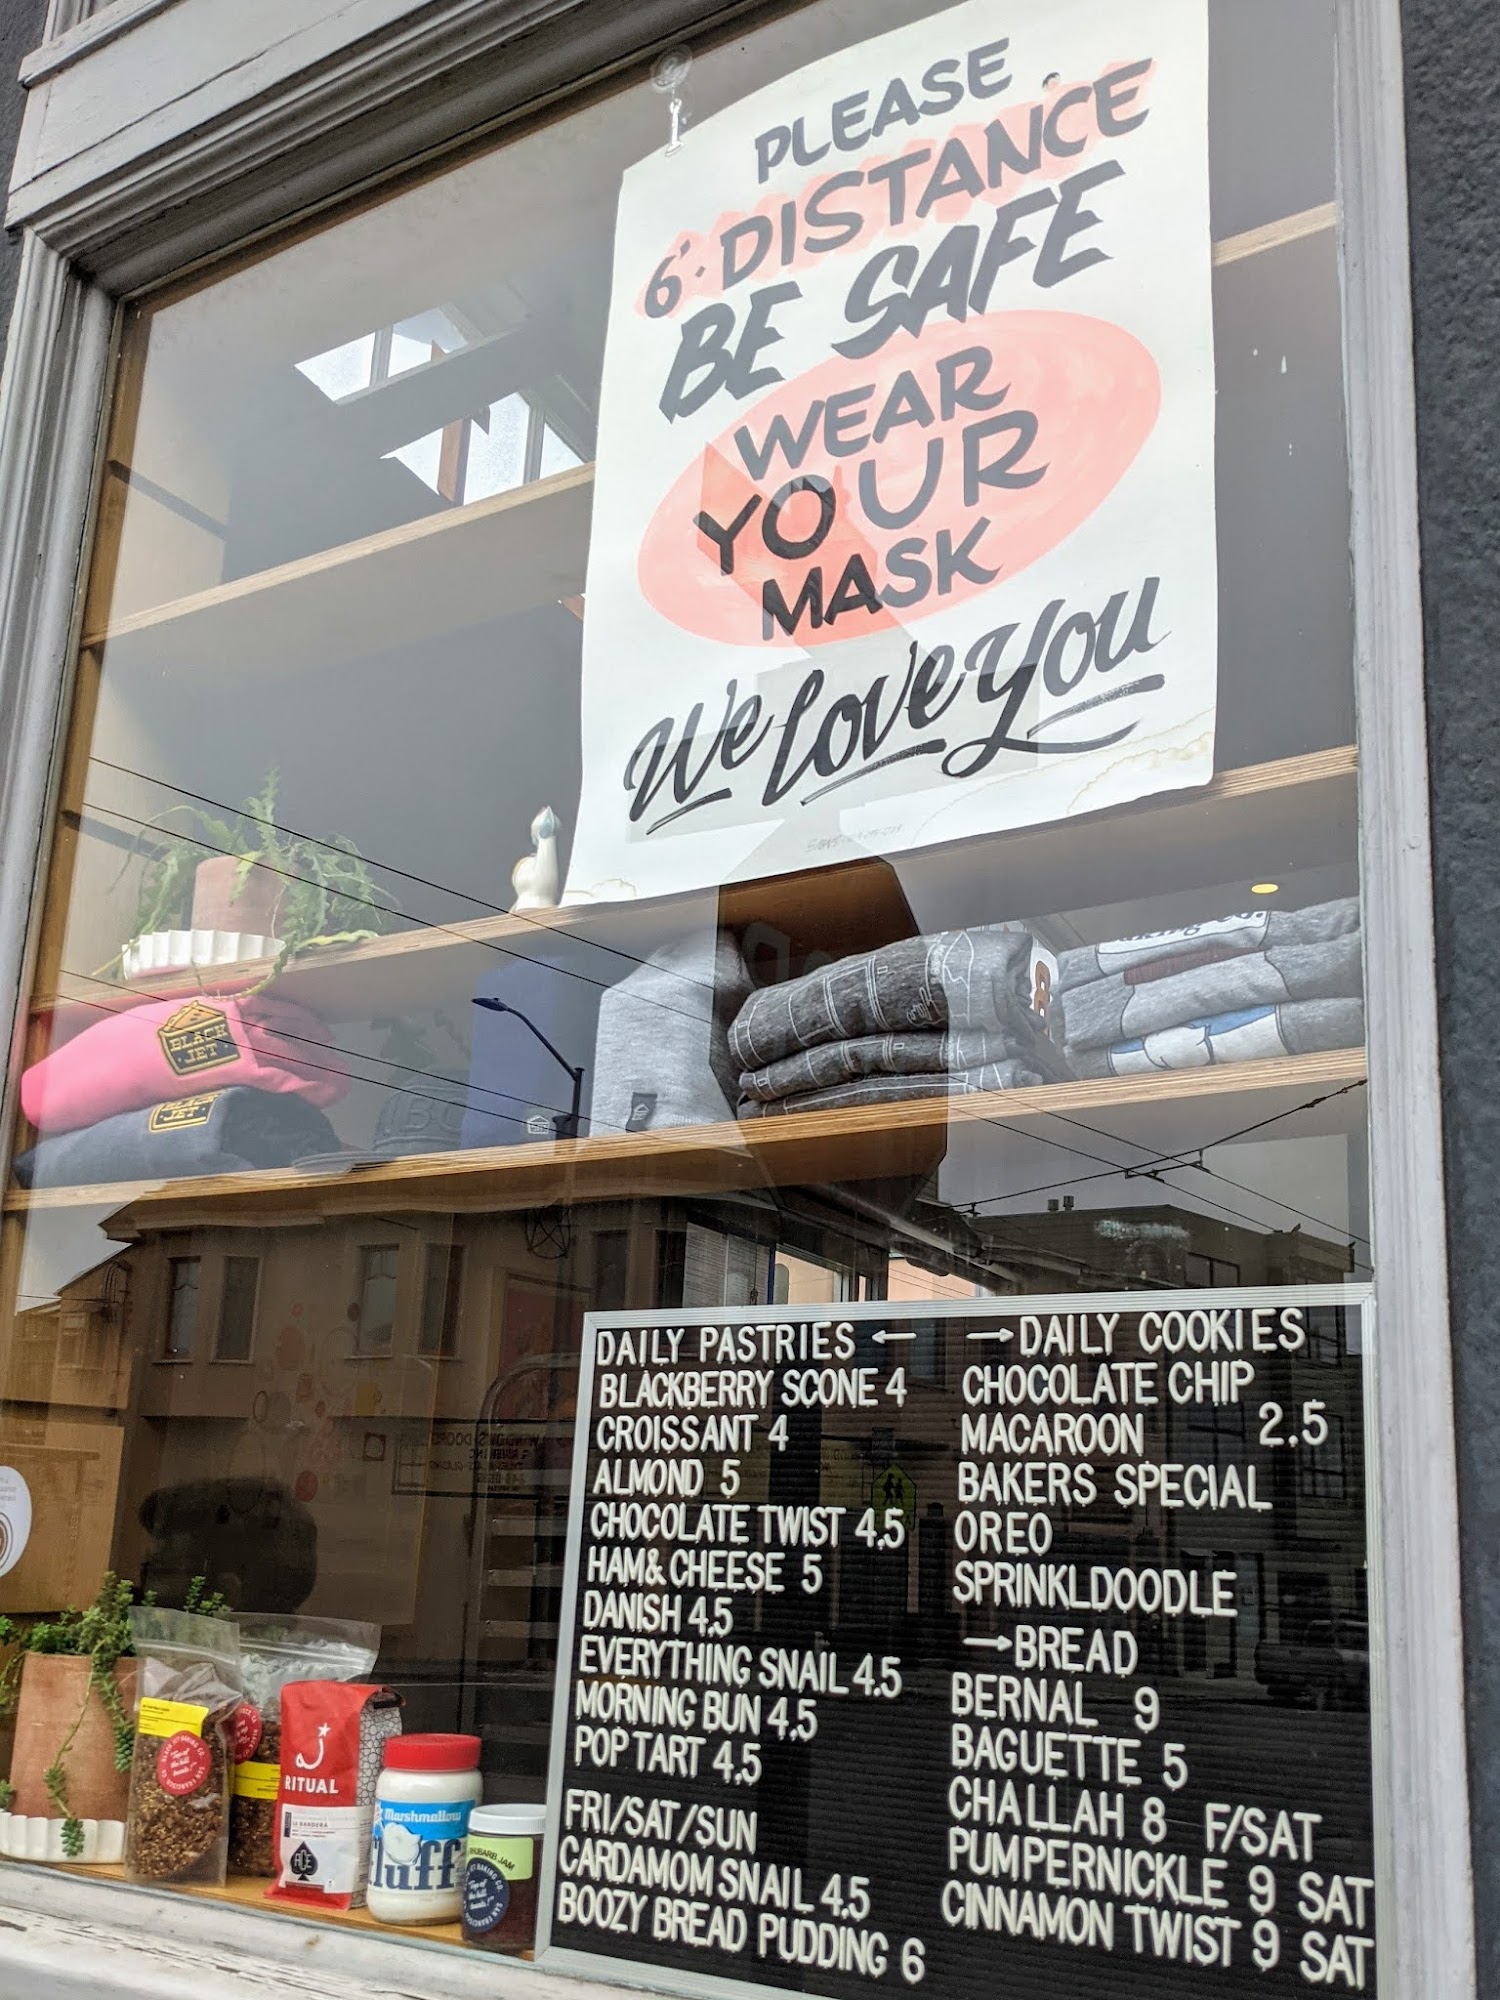 PLEASE
6' DISTANCE
BE SAFE
WEAR
YOUR
MASK
We Love You
BLACK
JET
BLACK
JET
DAILY PASTRIES ←
BLACKBERRY SCONE 4
CROISSANT 4
ALMOND 5
CHOCOLATE TWIST 4.5
HAM& CHEESE 5
DANISH 4.5
EVERYTHING SNAIL 4.5
MORNING BUN 4.5
POP TART 4.5
FRI/SAT/SUN
CARDAMOM SNAIL 4.5
BOOZY BREAD PUDDING 6
→ DAILY COOKIES
CHOCOLATE CHIP
MACAROON 2.5
BAKERS SPECIAL
OREO
SPRINKLDOODLE
→ BREAD
BERNAL 9
BAGUETTE 5
CHALLAH 8 F/SAT
PUMPERNICKLE 9 SAT
CINNAMON TWIST 9 SAT
RITUAL
LA BANDERA
Marshmallow
fluff
RHUBARB JAM
"Top of
the hill